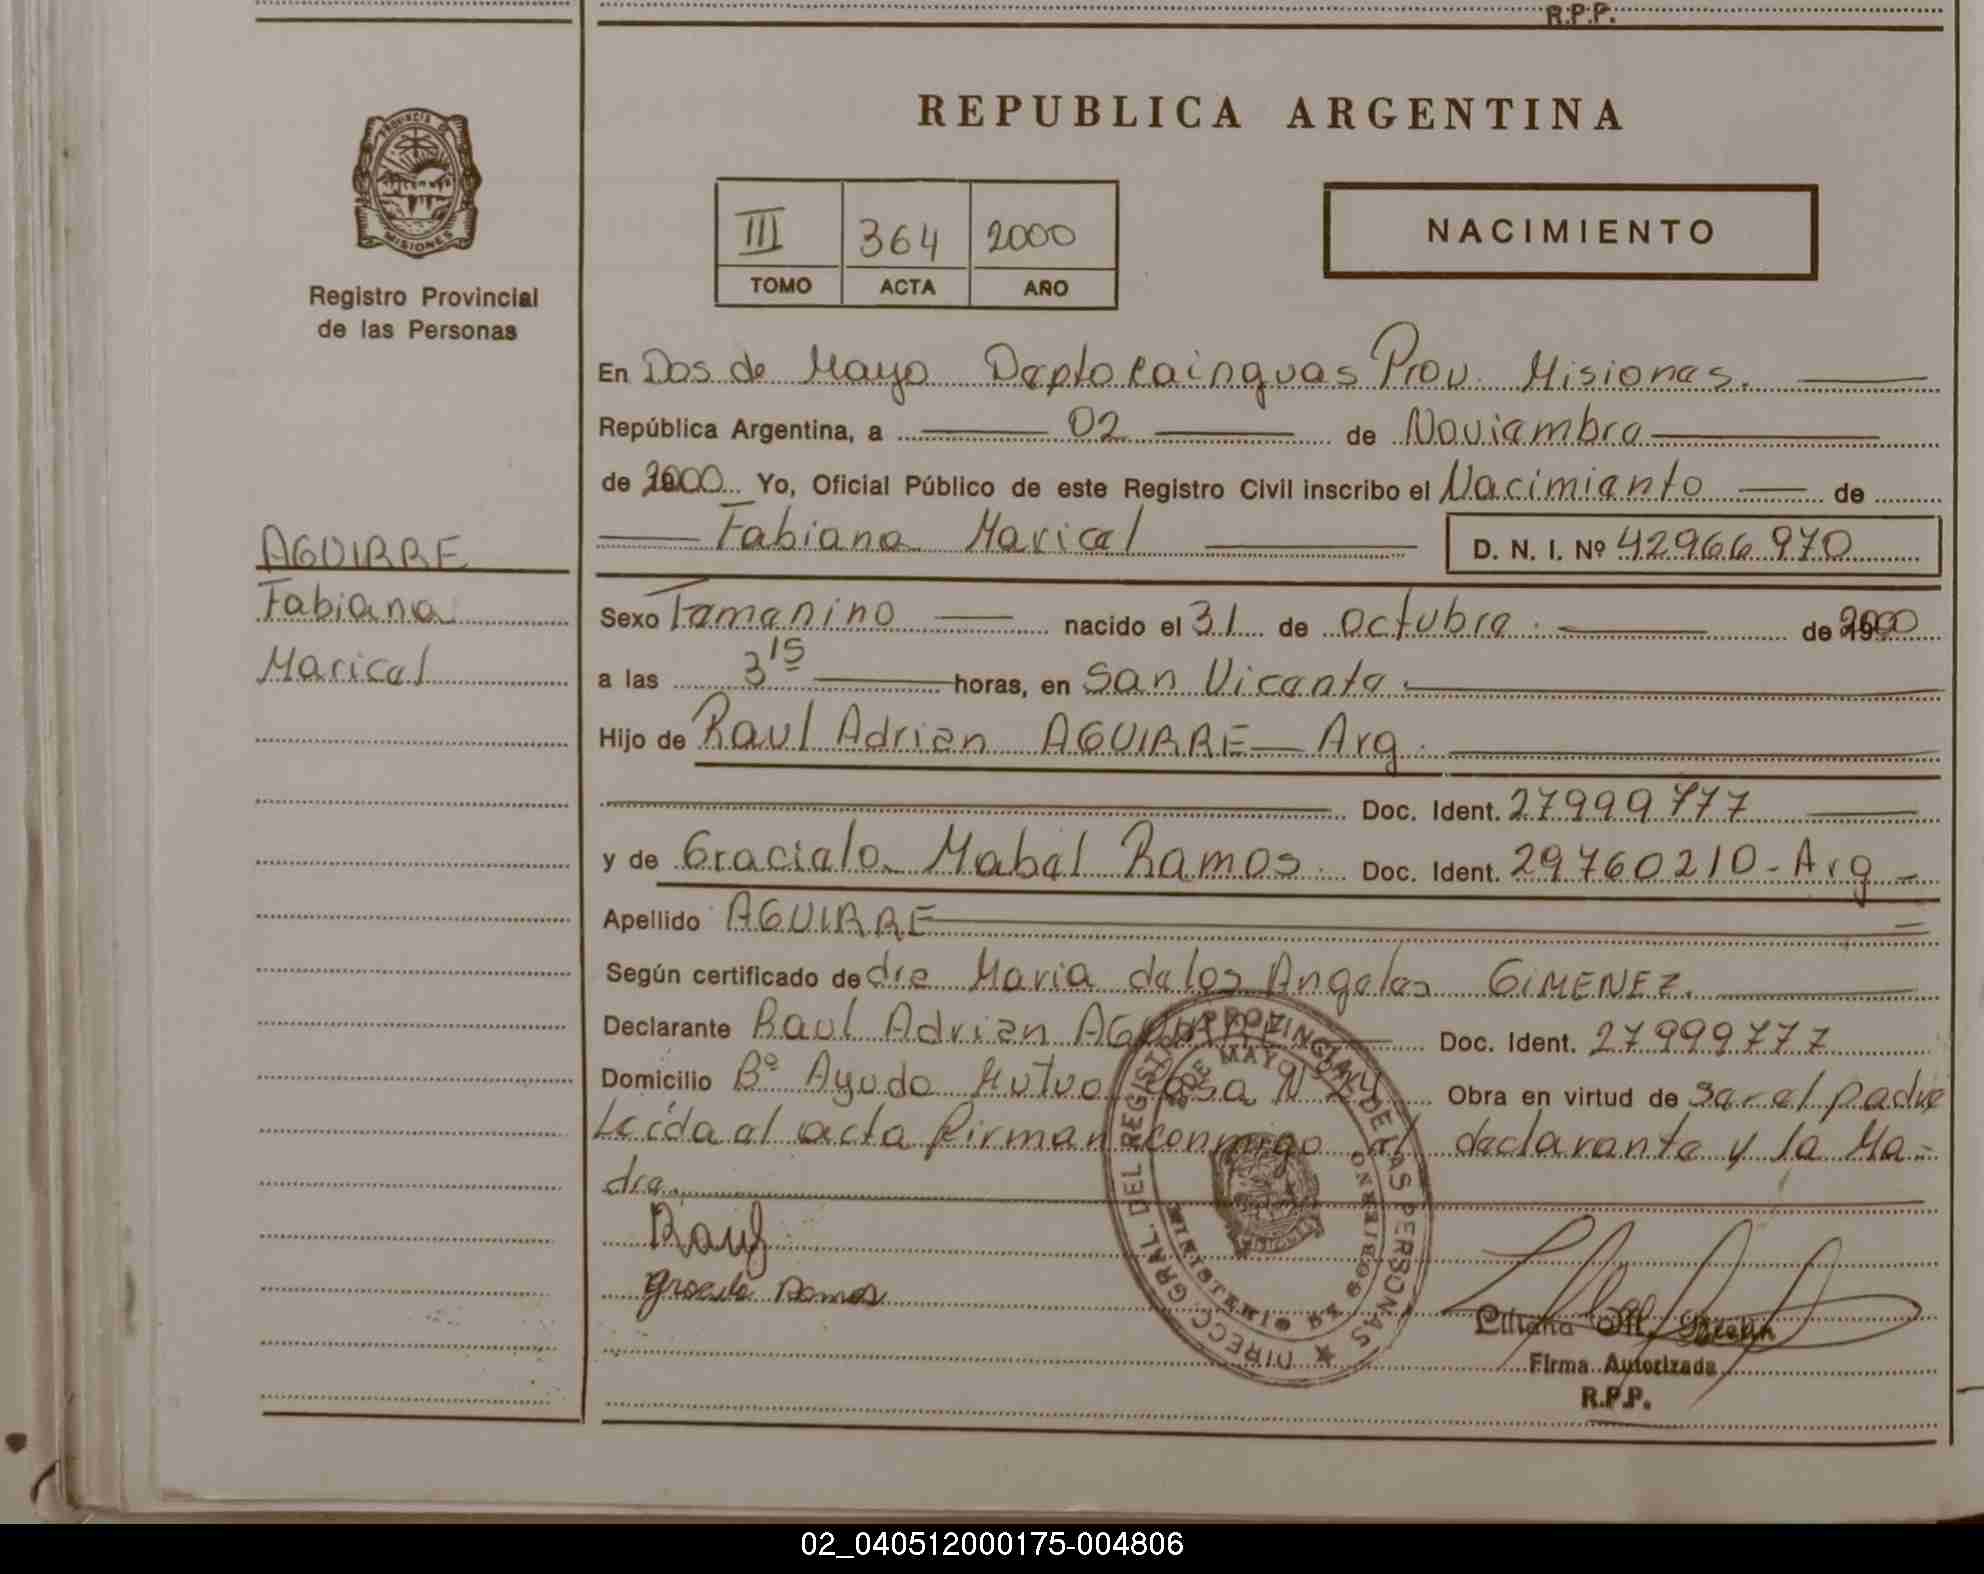 R.P.P.
REPUBLICA ARGENTINA
PROVINCIA DE
MISIONES
Registro Provincial
de las Personas
III 364 2000
TOMO ACTA AÑO
NACIMIENTO
En Dos de Mayo Depto Cainguas Prov. Misiones.
República Argentina, a 02 de Noviembre
de 2000 Yo, Oficial Público de este Registro Civil inscribo el Nacimiento de
Fabiana Maricel D. N. I. Nº 42966970
AGUIRRE
Fabiana
Maricel
Sexo Femenino nacido el 31 de Octubre de 2000
a las 3 15 horas, en San Vicente.
Hijo de Raul Adrian AGUIRRE Arg.
Doc. Ident. 27999777
y de Graciela Mabel Ramos. Doc. Ident. 29760210-Arg
Apellido AGUIRRE
Según certificado de dra Maria de los Angeles GIMENEZ.
Declarante Raul Adrian AGUIRRE Doc. Ident. 27999777
Domicilio Bº Ayuda Mutuo Casa N Obra en virtud de Ser el padre
Leída el acta firman conmigo el declarante y la Ma-
dre.
Raul
Graciela Ramos
DIRECC. GRAL. DEL REGISTRO PROVINCIAL DE LAS PERSONAS
2 DE MAYO
MINISTERIO DE GOBIERNO
Liliana M.
Firma Autorizada
R.P.P.
02_040512000175-004806